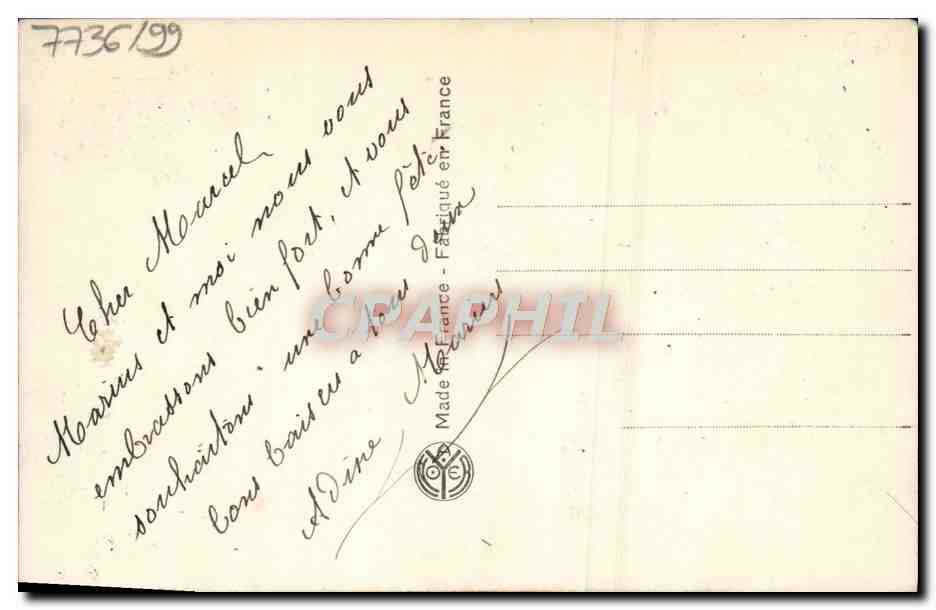 7736/99
Cher Marcel
Marius et moi nous vous
embrassons bien fort, et vous
souhaitons une bonne fête.
bons baisers a tous deux
Adine Marius
Made in France - Fabriqué en France
CPAPHIL